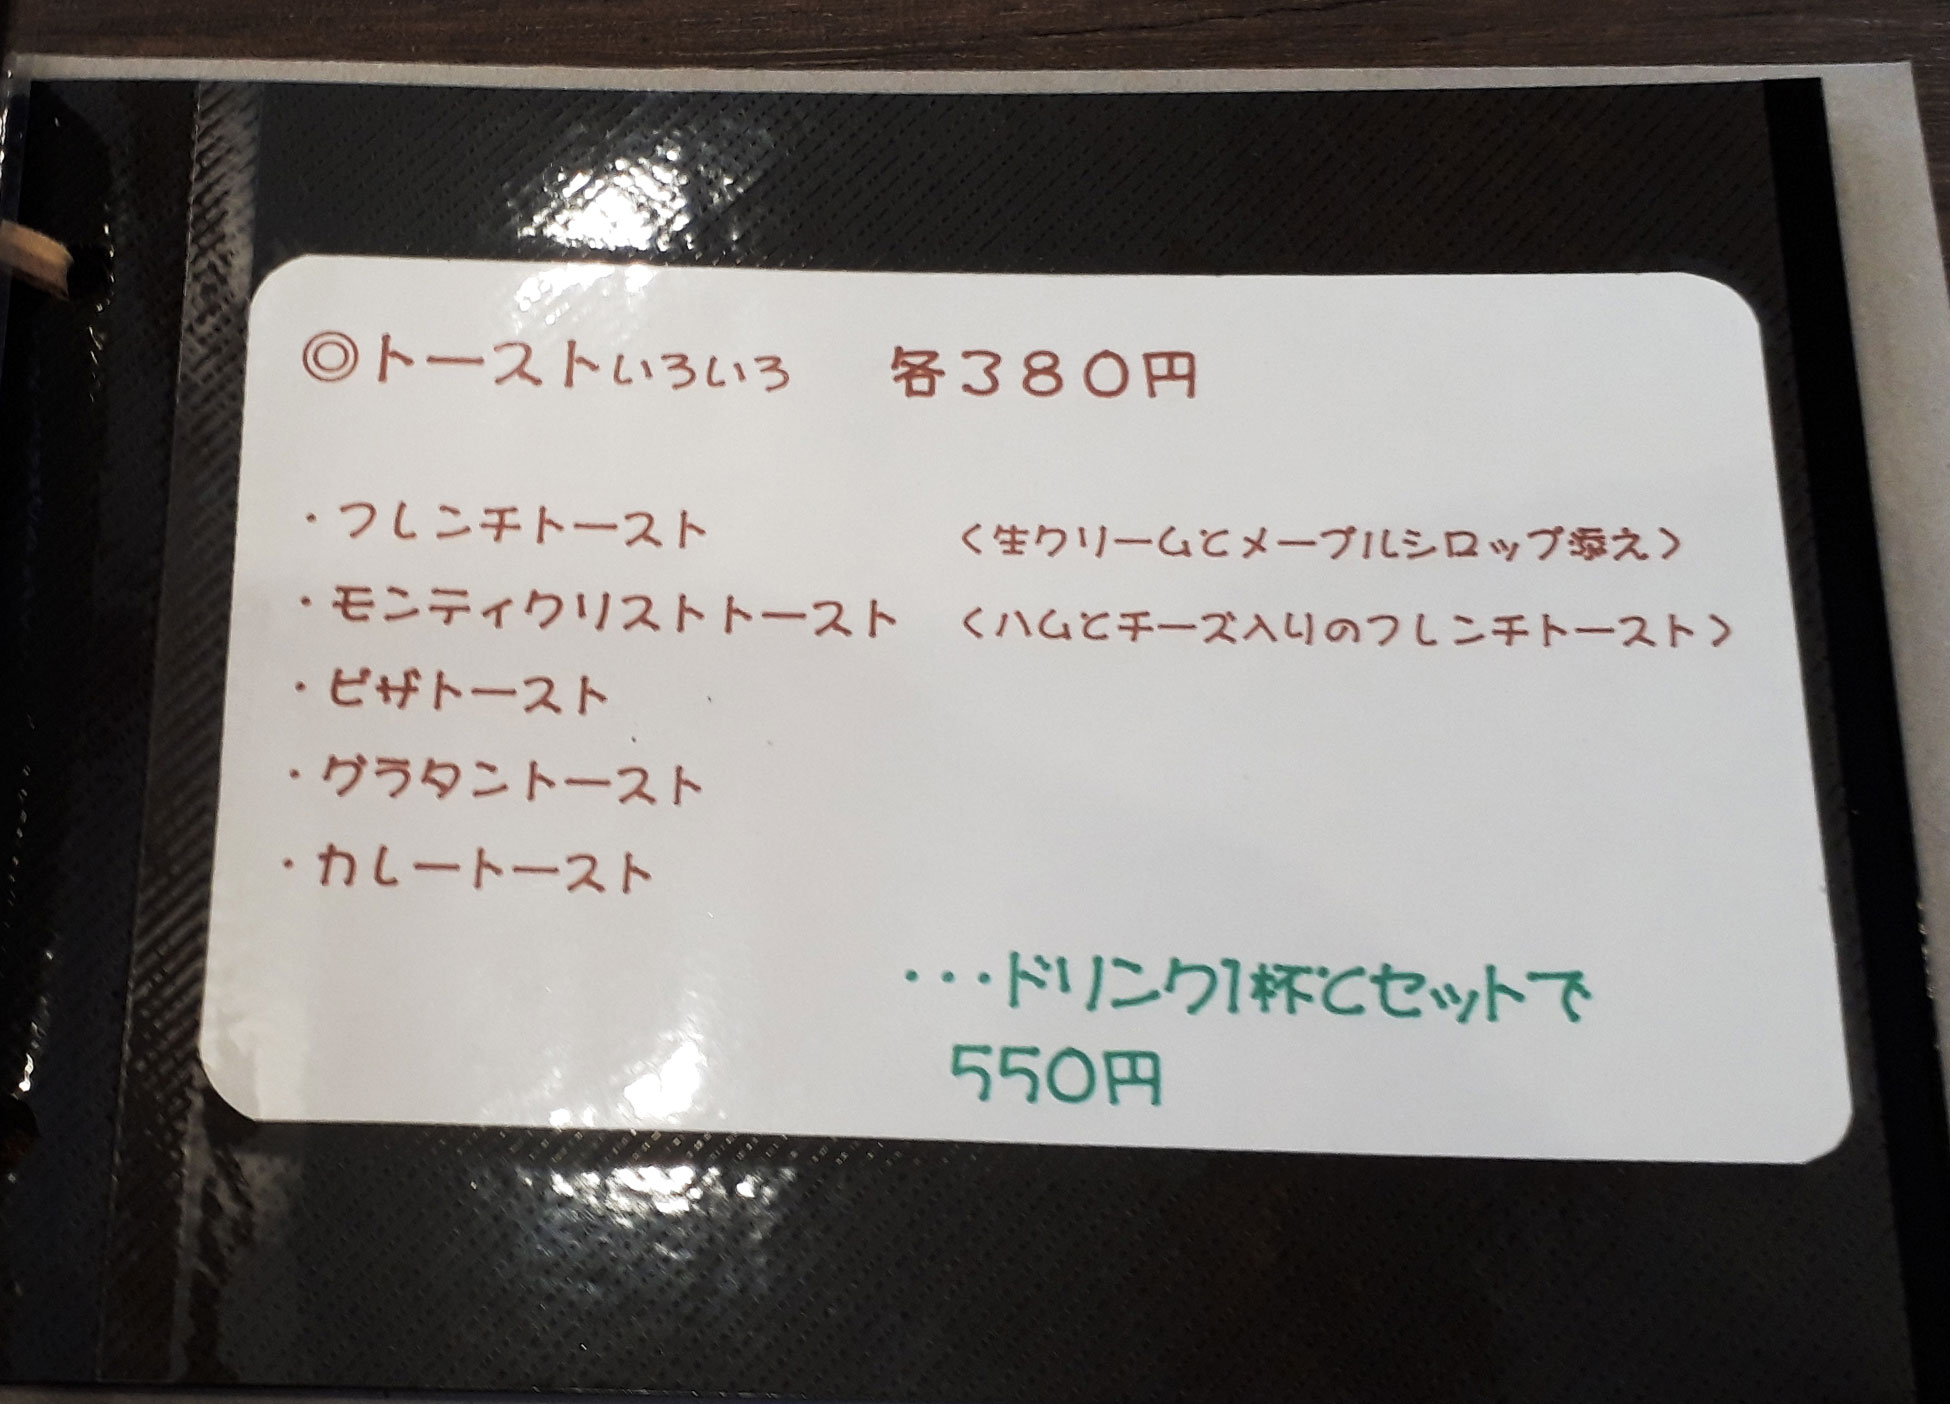 ◎トーストいろいろ　各380円
・フレンチトースト　〈生クリームとメープルシロップ添え〉
・モンティクリストトースト　〈ハムとチーズ入りのフレンチトースト〉
・ピザトースト
・グラタントースト
・カレートースト
・・・ドリンク1杯とセットで
550円